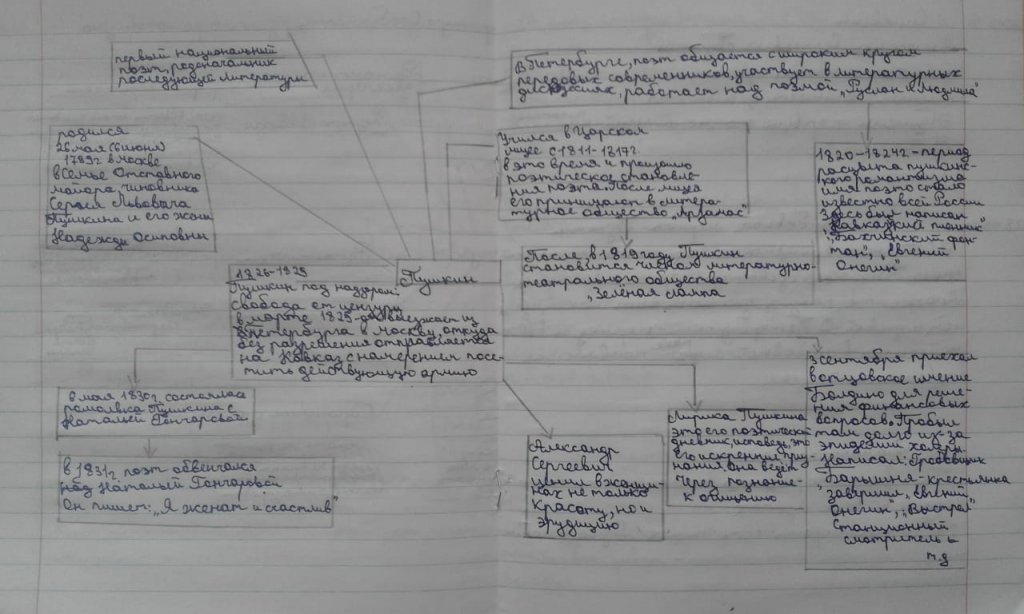 первый национальний
поэт, родоначальник
последующей литературы
в Петербурге, поэт общается с широким кругом
передовых современников, участвует в литературных
дискуссиях, работает над поэмой „Руслан и Людмила"
родился
26 мая (6 июня)
в Москве
в семье Отставного
майора, чиновника
Сергея Львовича
Пушкина и его жены
Надежды Осиповны
Учился в Царском
лицее с 1811-1817г
в это время и произошло
поэтическое становле-
ния поэта. После лицея
его принимают в литера-
турное общество „Арзамас"
1820-1824г - период
расцвета пушкинс-
кого романтизма
имя поэта стало
известно всей России
Здесь был написан
„Кавказкий пленник"
„Бахчисайский фон-
тан", „Евгений
Онегин"
После, в 1819 году Пушкин
становится членом литературно-
театрального общества
„Зелёная лампа
Пушкин
1826-1828
Пушкин под надзором:
Свобода от цензуры
в марте выезжает из
Петербурга в Москву, откуда
без разрешения отправляется
на Кавказ с намерением посе-
тить действующую армию
6 мая 1830г. состоялась
помолвка Пушкина с
Натальей Гончаровой
в 1831г поэт обвенчался
Натальей Гончаровой
Он пишет: „Я женат и счастлив"
Александр
Сергеевич
ценил в женщи-
нах не только
красоту, но и
эрудицию
Лирика Пушкина
это его поэтический
дневник, исповедь, это
его искренние приз-
нания. Она ведёт
через познание
к общению
3 сентября приехал
в отцовское имение
Болдино для реше-
ния финансовых
вопросов. Пробыл
там долго из-за
эпидемии холеры.
Написал: Гробовщик
„Барышня-крестьянка
завершил „Евгений
Онегин", „Выстрел"
Станционный
смотритель и
т.д